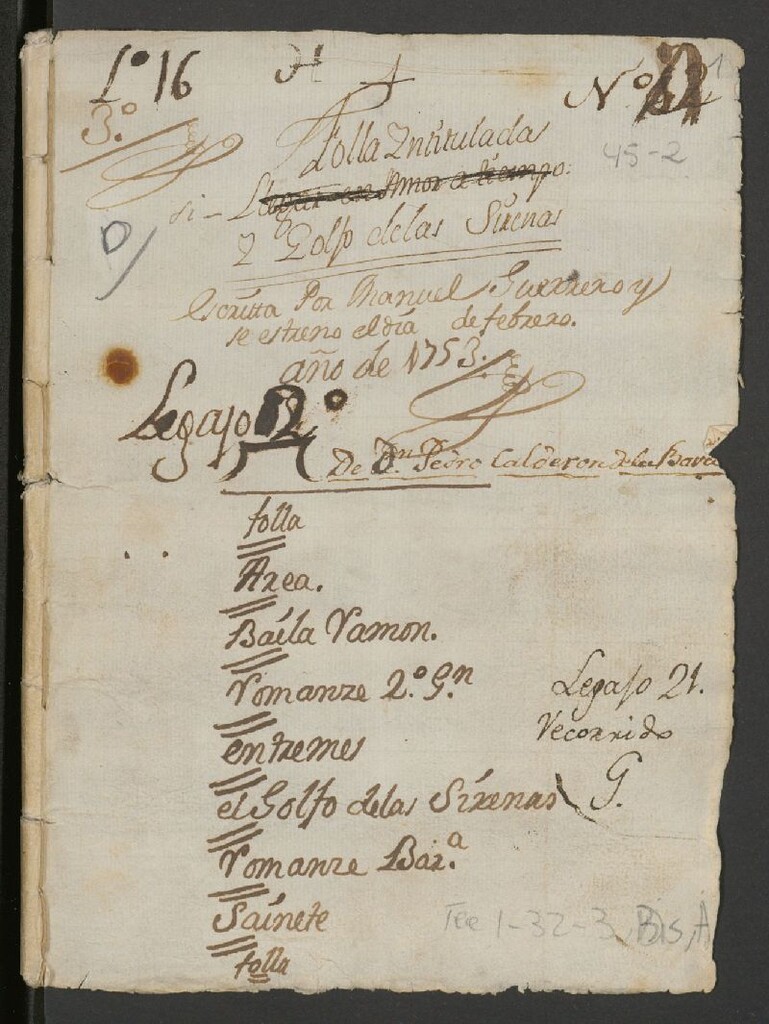 L.º 16 H N.º
3.º
folla Yntitulada
45-2
si - Llegar en Amor a tiempo.
y Golfo delas Sirenas
escritta Por Manuel Guerrero y
se estreno el dia de febrero.
año de 1753.
Legajo 2º
De Dn Pedro Calderon dela Barca
folla
Area.
Baila Ramon.
Romanze 2.º G.n
entremes
el Golfo delas Sirenas
Romanze Bar.a
Sainete
folla
Legajo 21.
Recorrido
G.
Tea 1-32-3, Bis, A